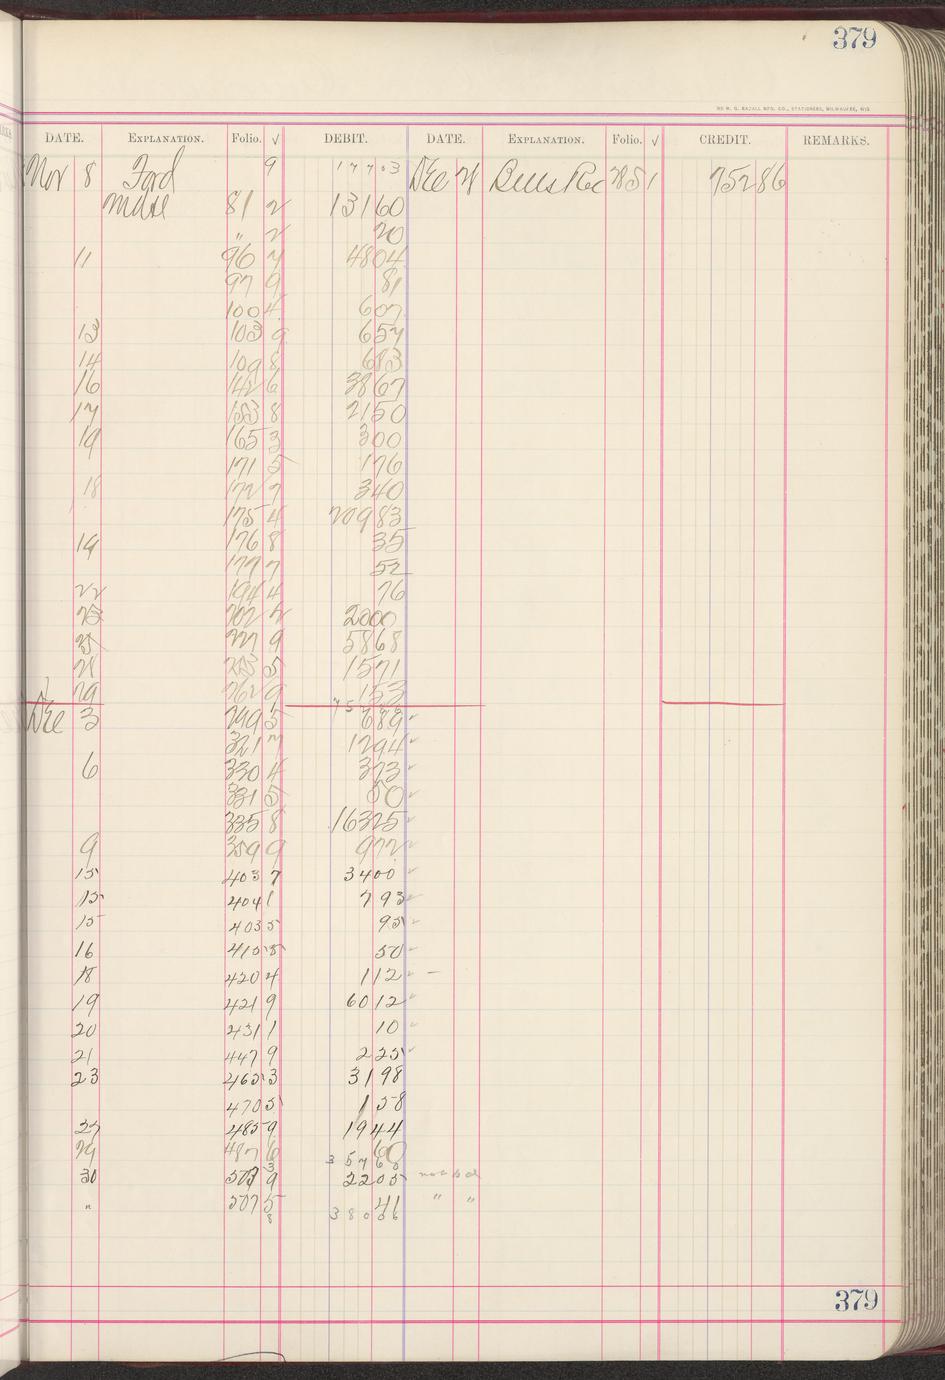 379
DATE. EXPLANATION. Folio. √ DEBIT. DATE. EXPLANATION. Folio. √ CREDIT. REMARKS.
Nov 8 Ford 9 177.03 Dec Bills Rec 285 1 752 86
mdse 81 2 131 60
" 2 20
11 96 7 48 04
97 9 81
100 4 6 07
13 103 9 6 57
14 109 8 6 83
16 142 6 38 67
17 153 8 21 50
19 165 3 3 00
171 5 1 76
18 172 7 3 40
175 4 209 83
19 176 8 35
177 7 52
22 194 4 76
23 202 2 20 00
25 227 9 58 68
28 243 5 15 71
29 262 9 1 53
Dec 3 299 5 6 89
321 7 12 94
6 330 4 3 73
331 5 50
335 8 163 25
9 359 9 9 72
15 403 7 34 00
15 404 1 7 93
15 403 5 95
16 415 8 50
18 420 4 1 12
19 421 9 60 12
20 431 1 10
21 447 9 2 25
23 465 3 31 98
470 5 1 58
27 485 9 19 44
29 487 6 60
357 68
30 503 9 22 05
" 507 5 41 " "
8 380 06
379